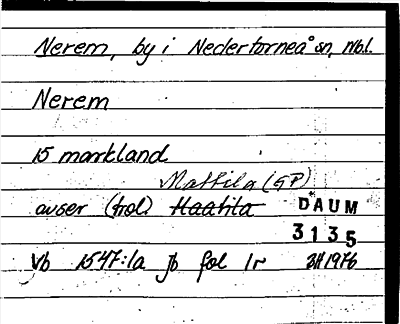 Nerem, by i Nedertorneå sn, Nbl.
Nerem
15 markland
Mattila (GP)
avser (trol.) Haatila DAUM
3135
Vb 1547:1a Jb fol 1r 1976